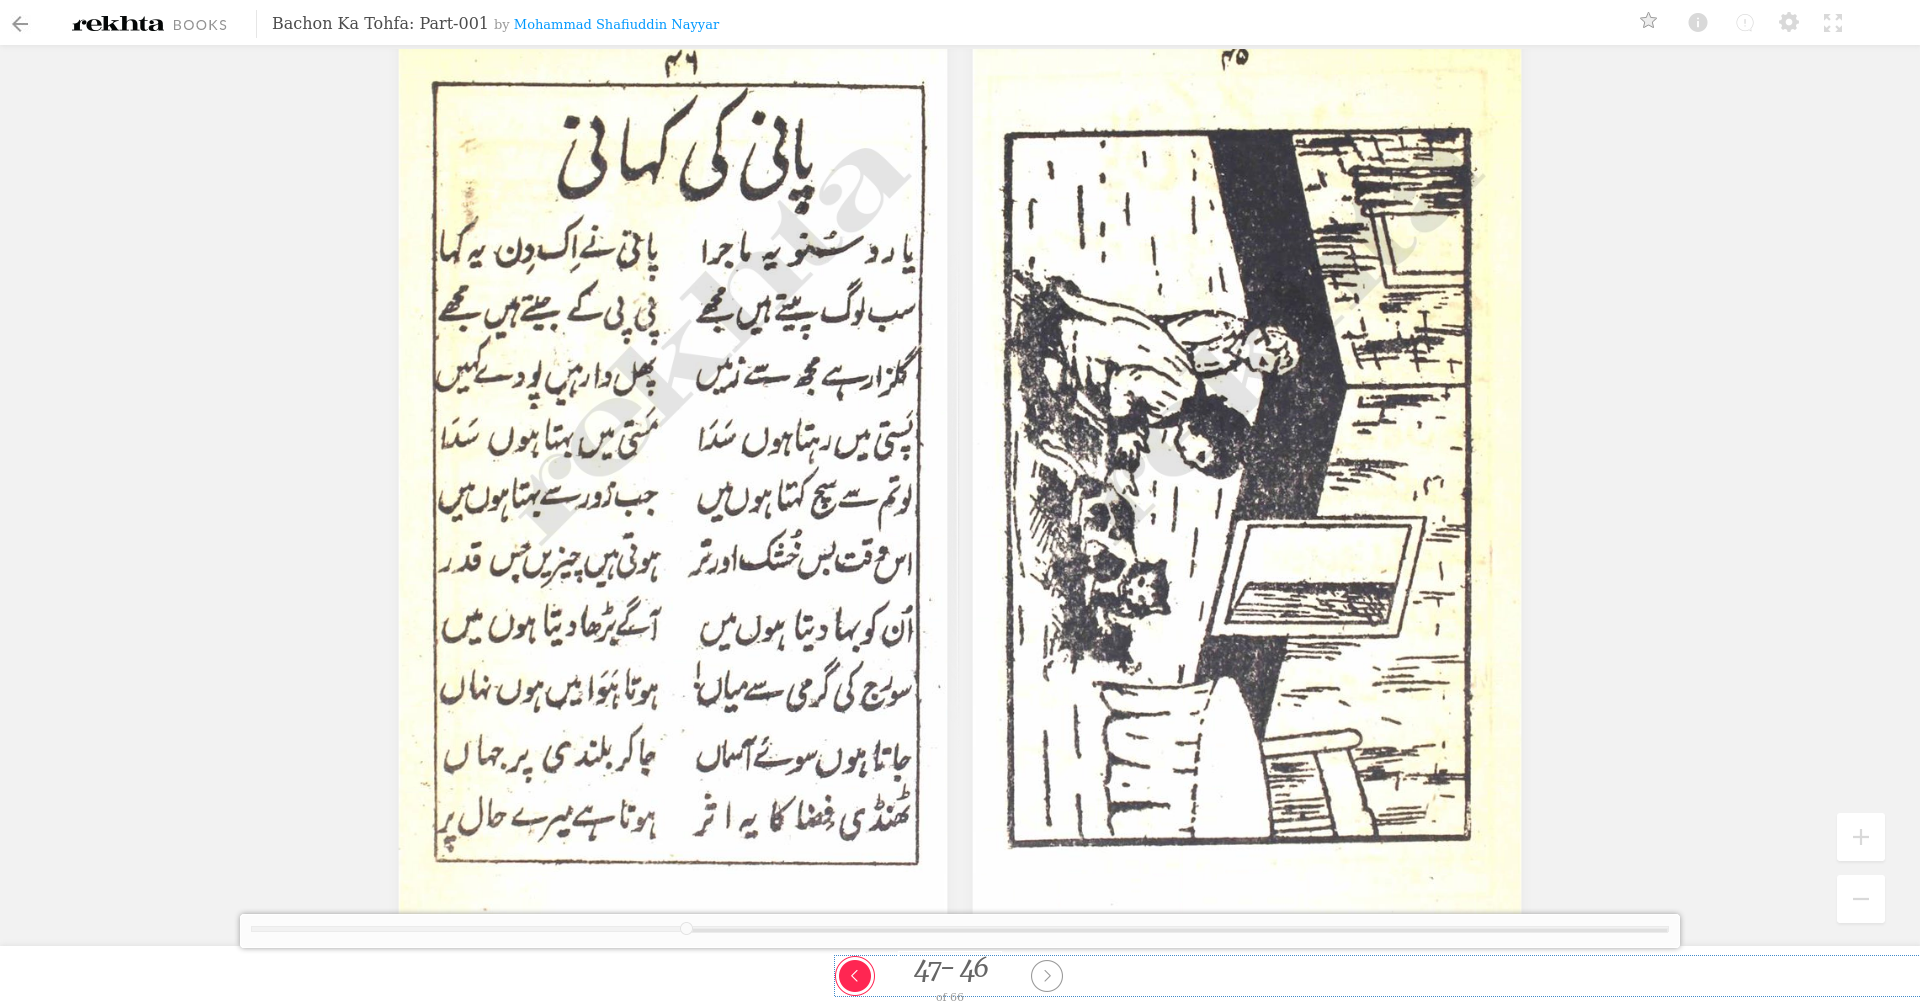 rekhta BOOKS
Bachon Ka Tohfa: Part-001 by Mohammad Shafiuddin Nayyar
۴۵
۴۶
پانی کی کہانی
یارو سُنو یہ ماجرا پانی نے اِک دِن یہ کہا
سب لوگ پیتے ہیں مجھے پی پی کے جیتے ہیں مجھے
گلزار ہے مجھ سے زمیں پھل دار ہیں پودے کہیں
پَستی میں رہتا ہوں سَدَا مَستی میں بہتا ہوں سَدَا
لو تم سے سچ کہتا ہوں میں جب زور سے بہتا ہوں میں
اس وقت بس خُشک اور تر ہوتی ہیں چیزیں جس قدر
اُن کو بہا دیتا ہوں میں آگے بڑھا دیتا ہوں میں
سورج کی گرمی سے میاں ہوتا ہَوَا میں ہوں نہاں
جاتا ہوں سوئے آسماں جا کر بلندی پر جہاں
ٹھنڈی فِضا کا یہ اثر ہوتا ہے میرے حال پر
rekhta
rekhta
47- 46
of 66